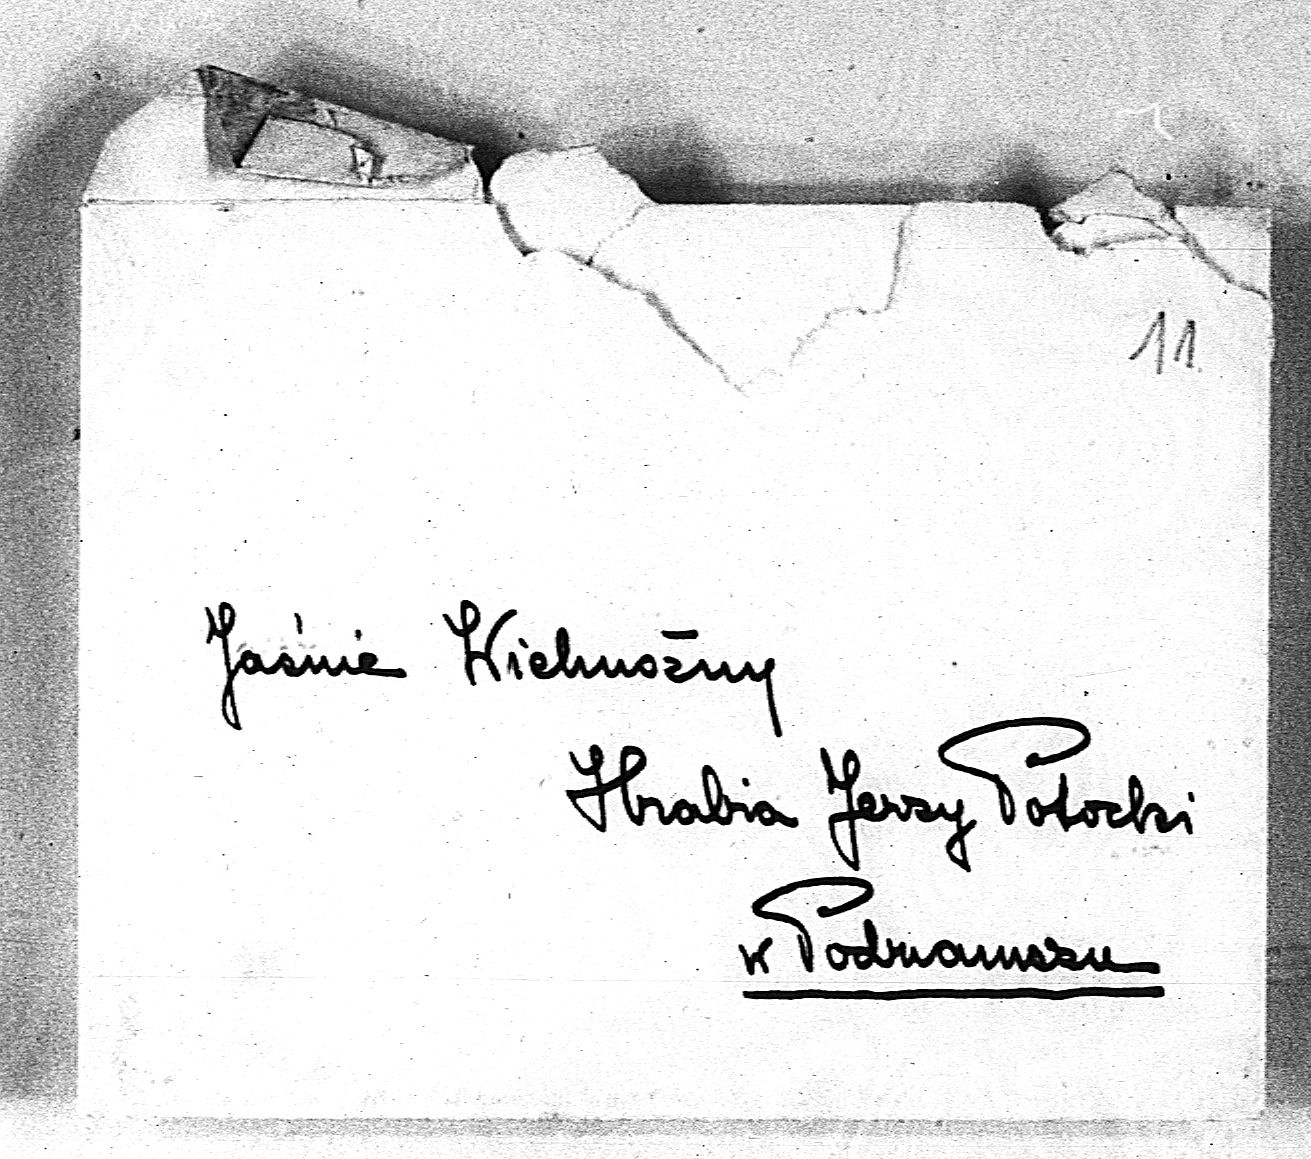 11
Jaśnie Wielmożny
Hrabia Jerzy Potocki
w Podzamczu